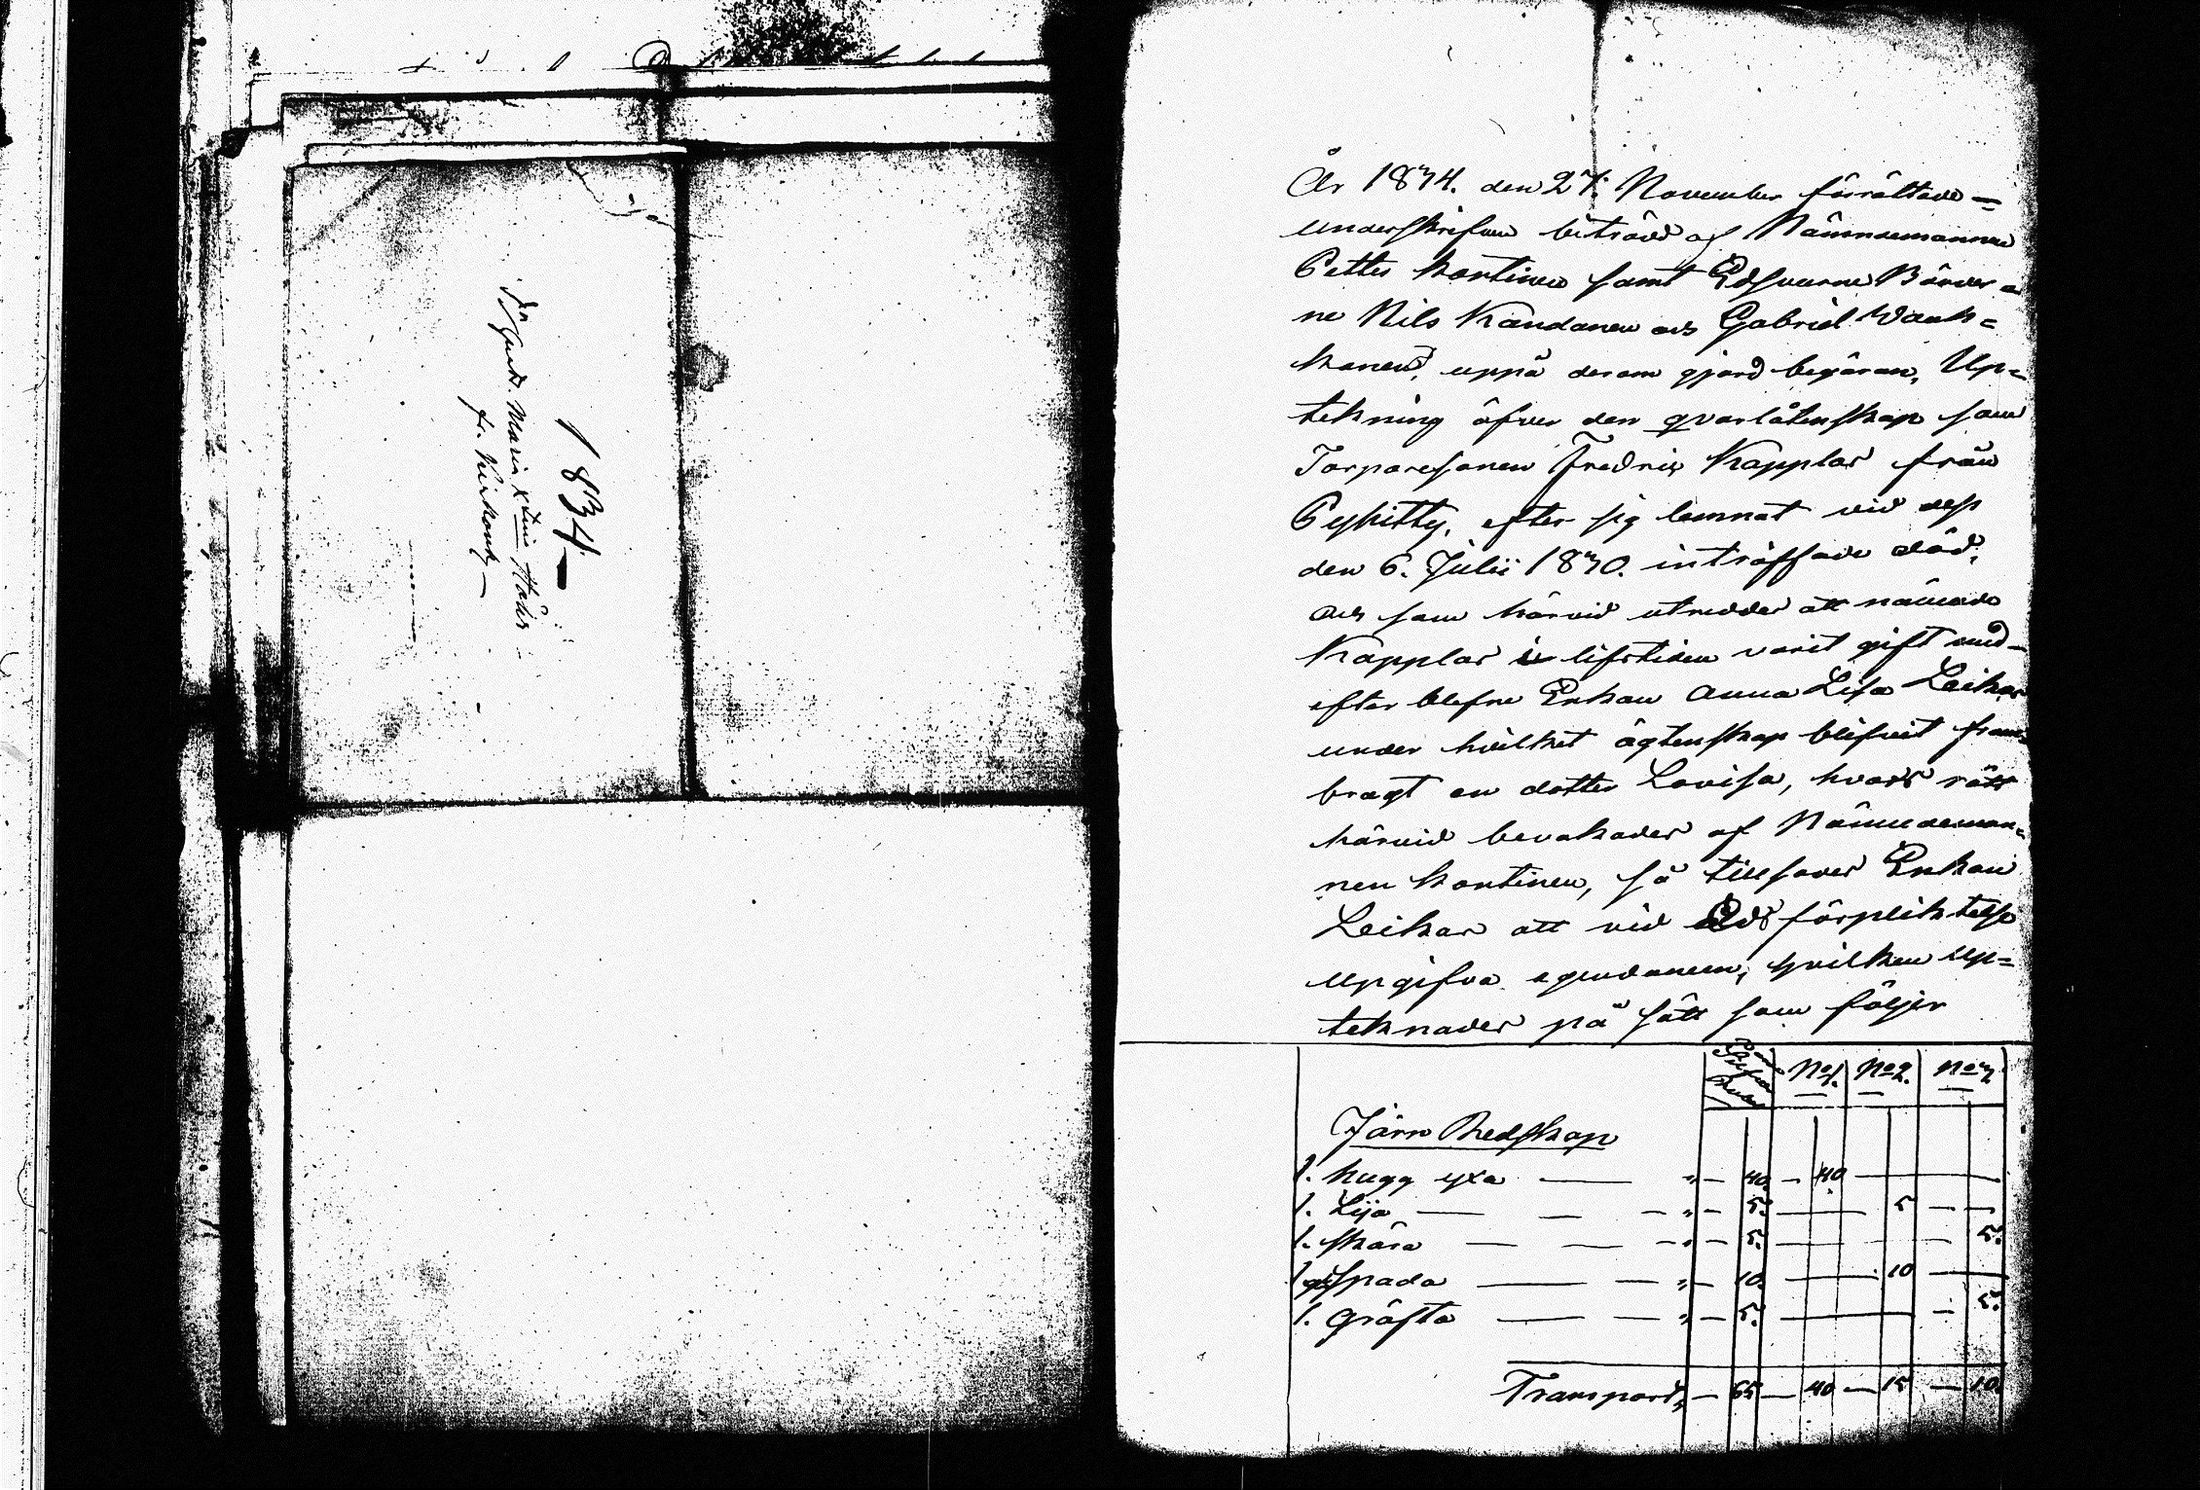 1834
Maria
År 1834. den 27. November förrättade
underskrifven biträdd af Nämndemannen
Petter Kontinen samt Edsvurne Bönder=
ne Nils Kandanen och Gabriel Wauh=
konen, uppå derom gjord begäran, Up=
tekning öfver den qvarlåtenskap som
Torparesonen Fredric Käpplar från
Pyhitty, efter sig lemnat vid dess
den 6. Julii 1830. inträffade död,
och som härvid utreddes att nämnde
Käpplar i lifstiden varit gift med
efterblefne Enkan Anna Lisa Leikar
under hvilket ägtenskap blifvit fram=
bragt en dotter Lovisa, hvars rätt
härvid bevakades af Nämndeman=
nen Kontinen, så tillsades Enkan
Leikar att vid Eds förpliktelse
upgifva egendomen, hvilken up=
teknades på sätt som följer
No 1. No 2. No 3.
Järn Redskap
1. hugg yxa — " — 40. — 40
1. Lija — " — 5. — 5
1. skära — " — 5. — 5.
1 spada — " — 10. — 10
1. gräfta — " — 5. — 5.
Transport, — 65 — 40 — 15 — 10.